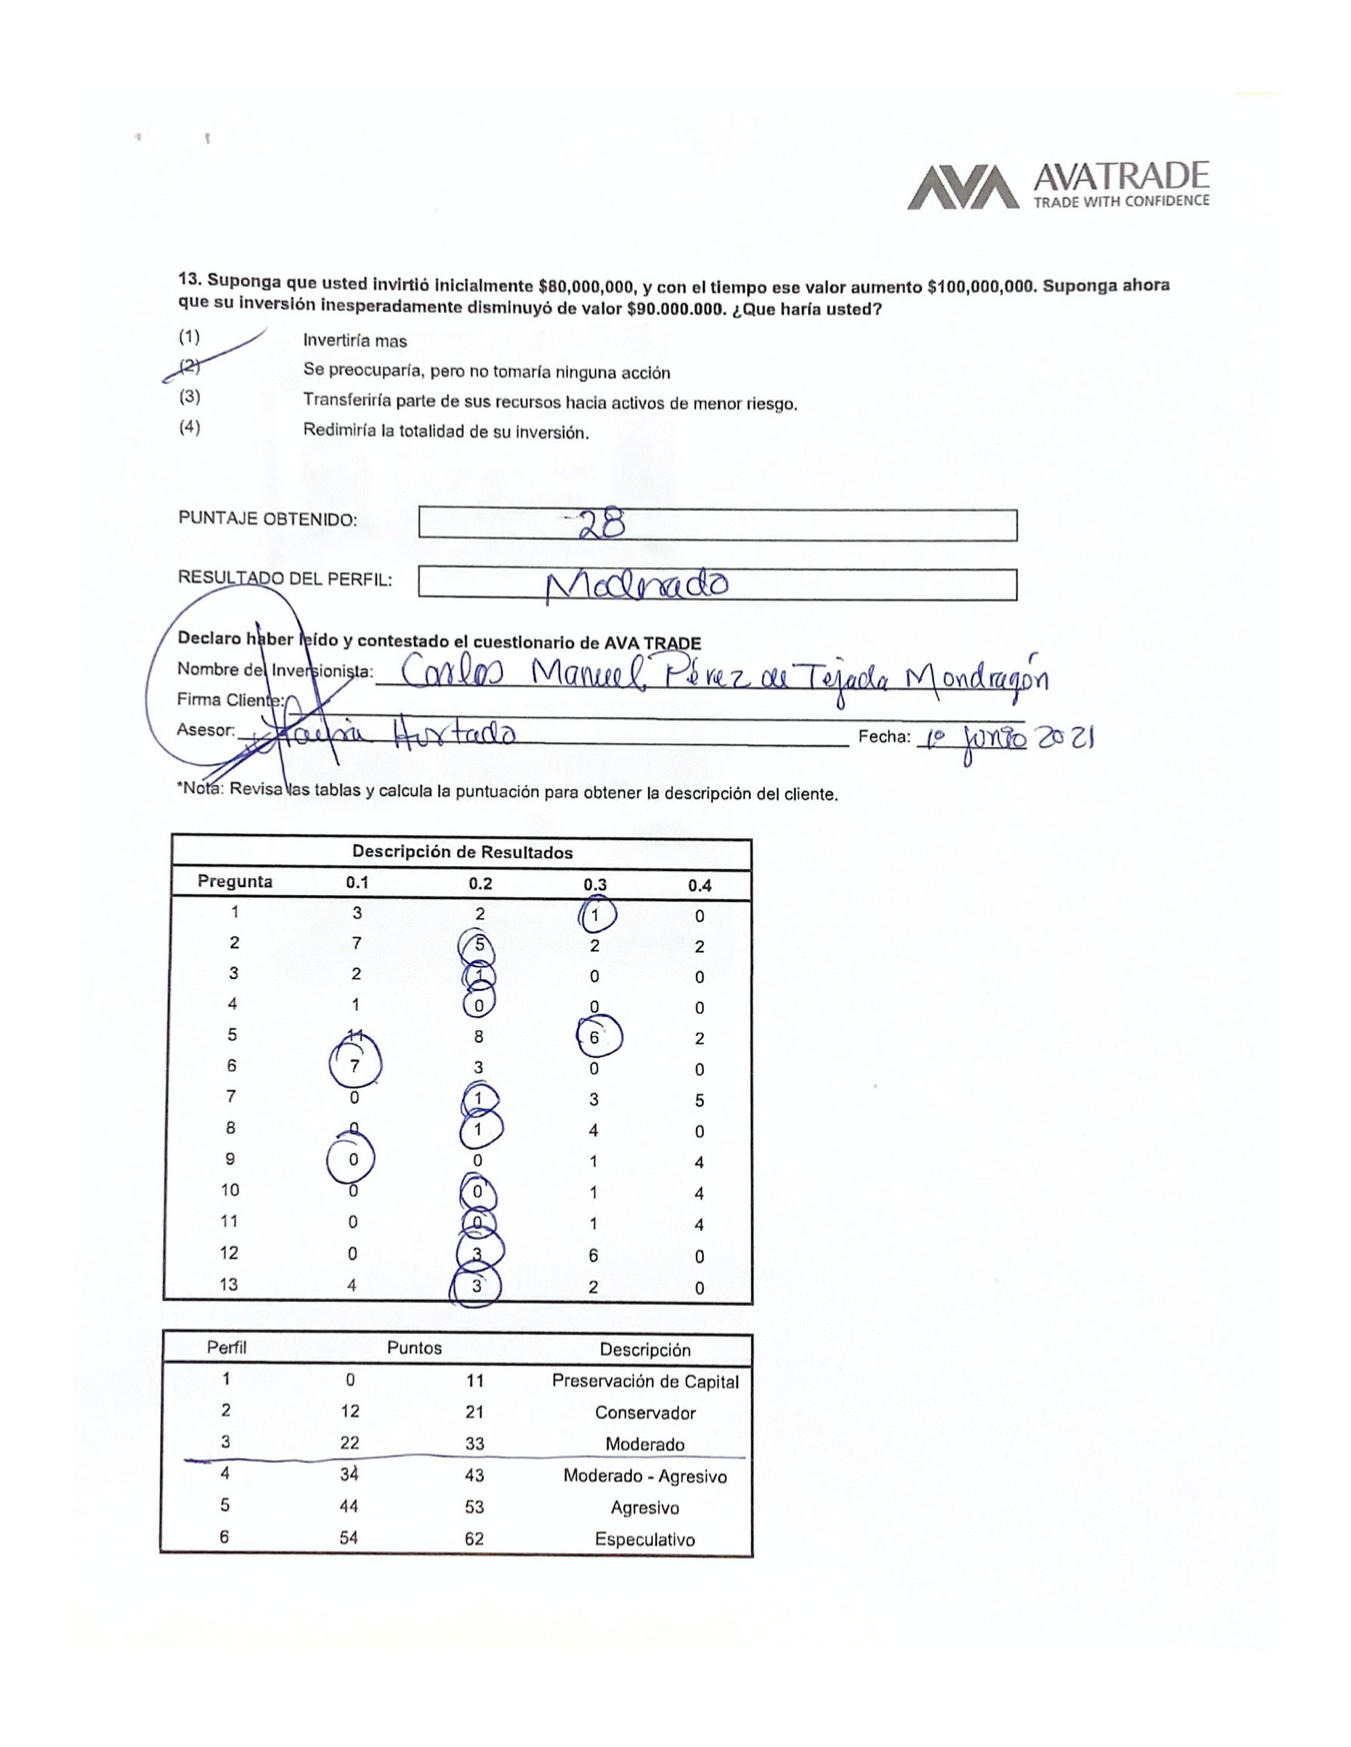 AVA AVATRADE
TRADE WITH CONFIDENCE
13. Suponga que usted invirtió inicialmente $80,000,000, y con el tiempo ese valor aumento $100,000,000. Suponga ahora
que su inversión inesperadamente disminuyó de valor $90.000.000. ¿Que haría usted?
(1) Invertiría mas
(2) Se preocuparía, pero no tomaría ninguna acción
(3) Transferiría parte de sus recursos hacia activos de menor riesgo.
(4) Redimiría la totalidad de su inversión.
PUNTAJE OBTENIDO: 28
RESULTADO DEL PERFIL: Moderado
Declaro haber leído y contestado el cuestionario de AVA TRADE
Nombre del Inversionista: Carlos Manuel Pérez de Tejada Mondragón
Firma Cliente:
Asesor: Hurtado Fecha: 1º junio 2021
*Nota: Revisa las tablas y calcula la puntuación para obtener la descripción del cliente.
Descripción de Resultados
Pregunta 0.1 0.2 0.3 0.4
1 3 2 1 0
2 7 5 2 2
3 2 1 0 0
4 1 0 0 0
5 11 8 6 2
6 7 3 0 0
7 0 1 3 5
8 0 1 4 0
9 0 0 1 4
10 0 0 1 4
11 0 0 1 4
12 0 3 6 0
13 4 3 2 0
Perfil Puntos Descripción
1 0 11 Preservación de Capital
2 12 21 Conservador
3 22 33 Moderado
4 34 43 Moderado - Agresivo
5 44 53 Agresivo
6 54 62 Especulativo